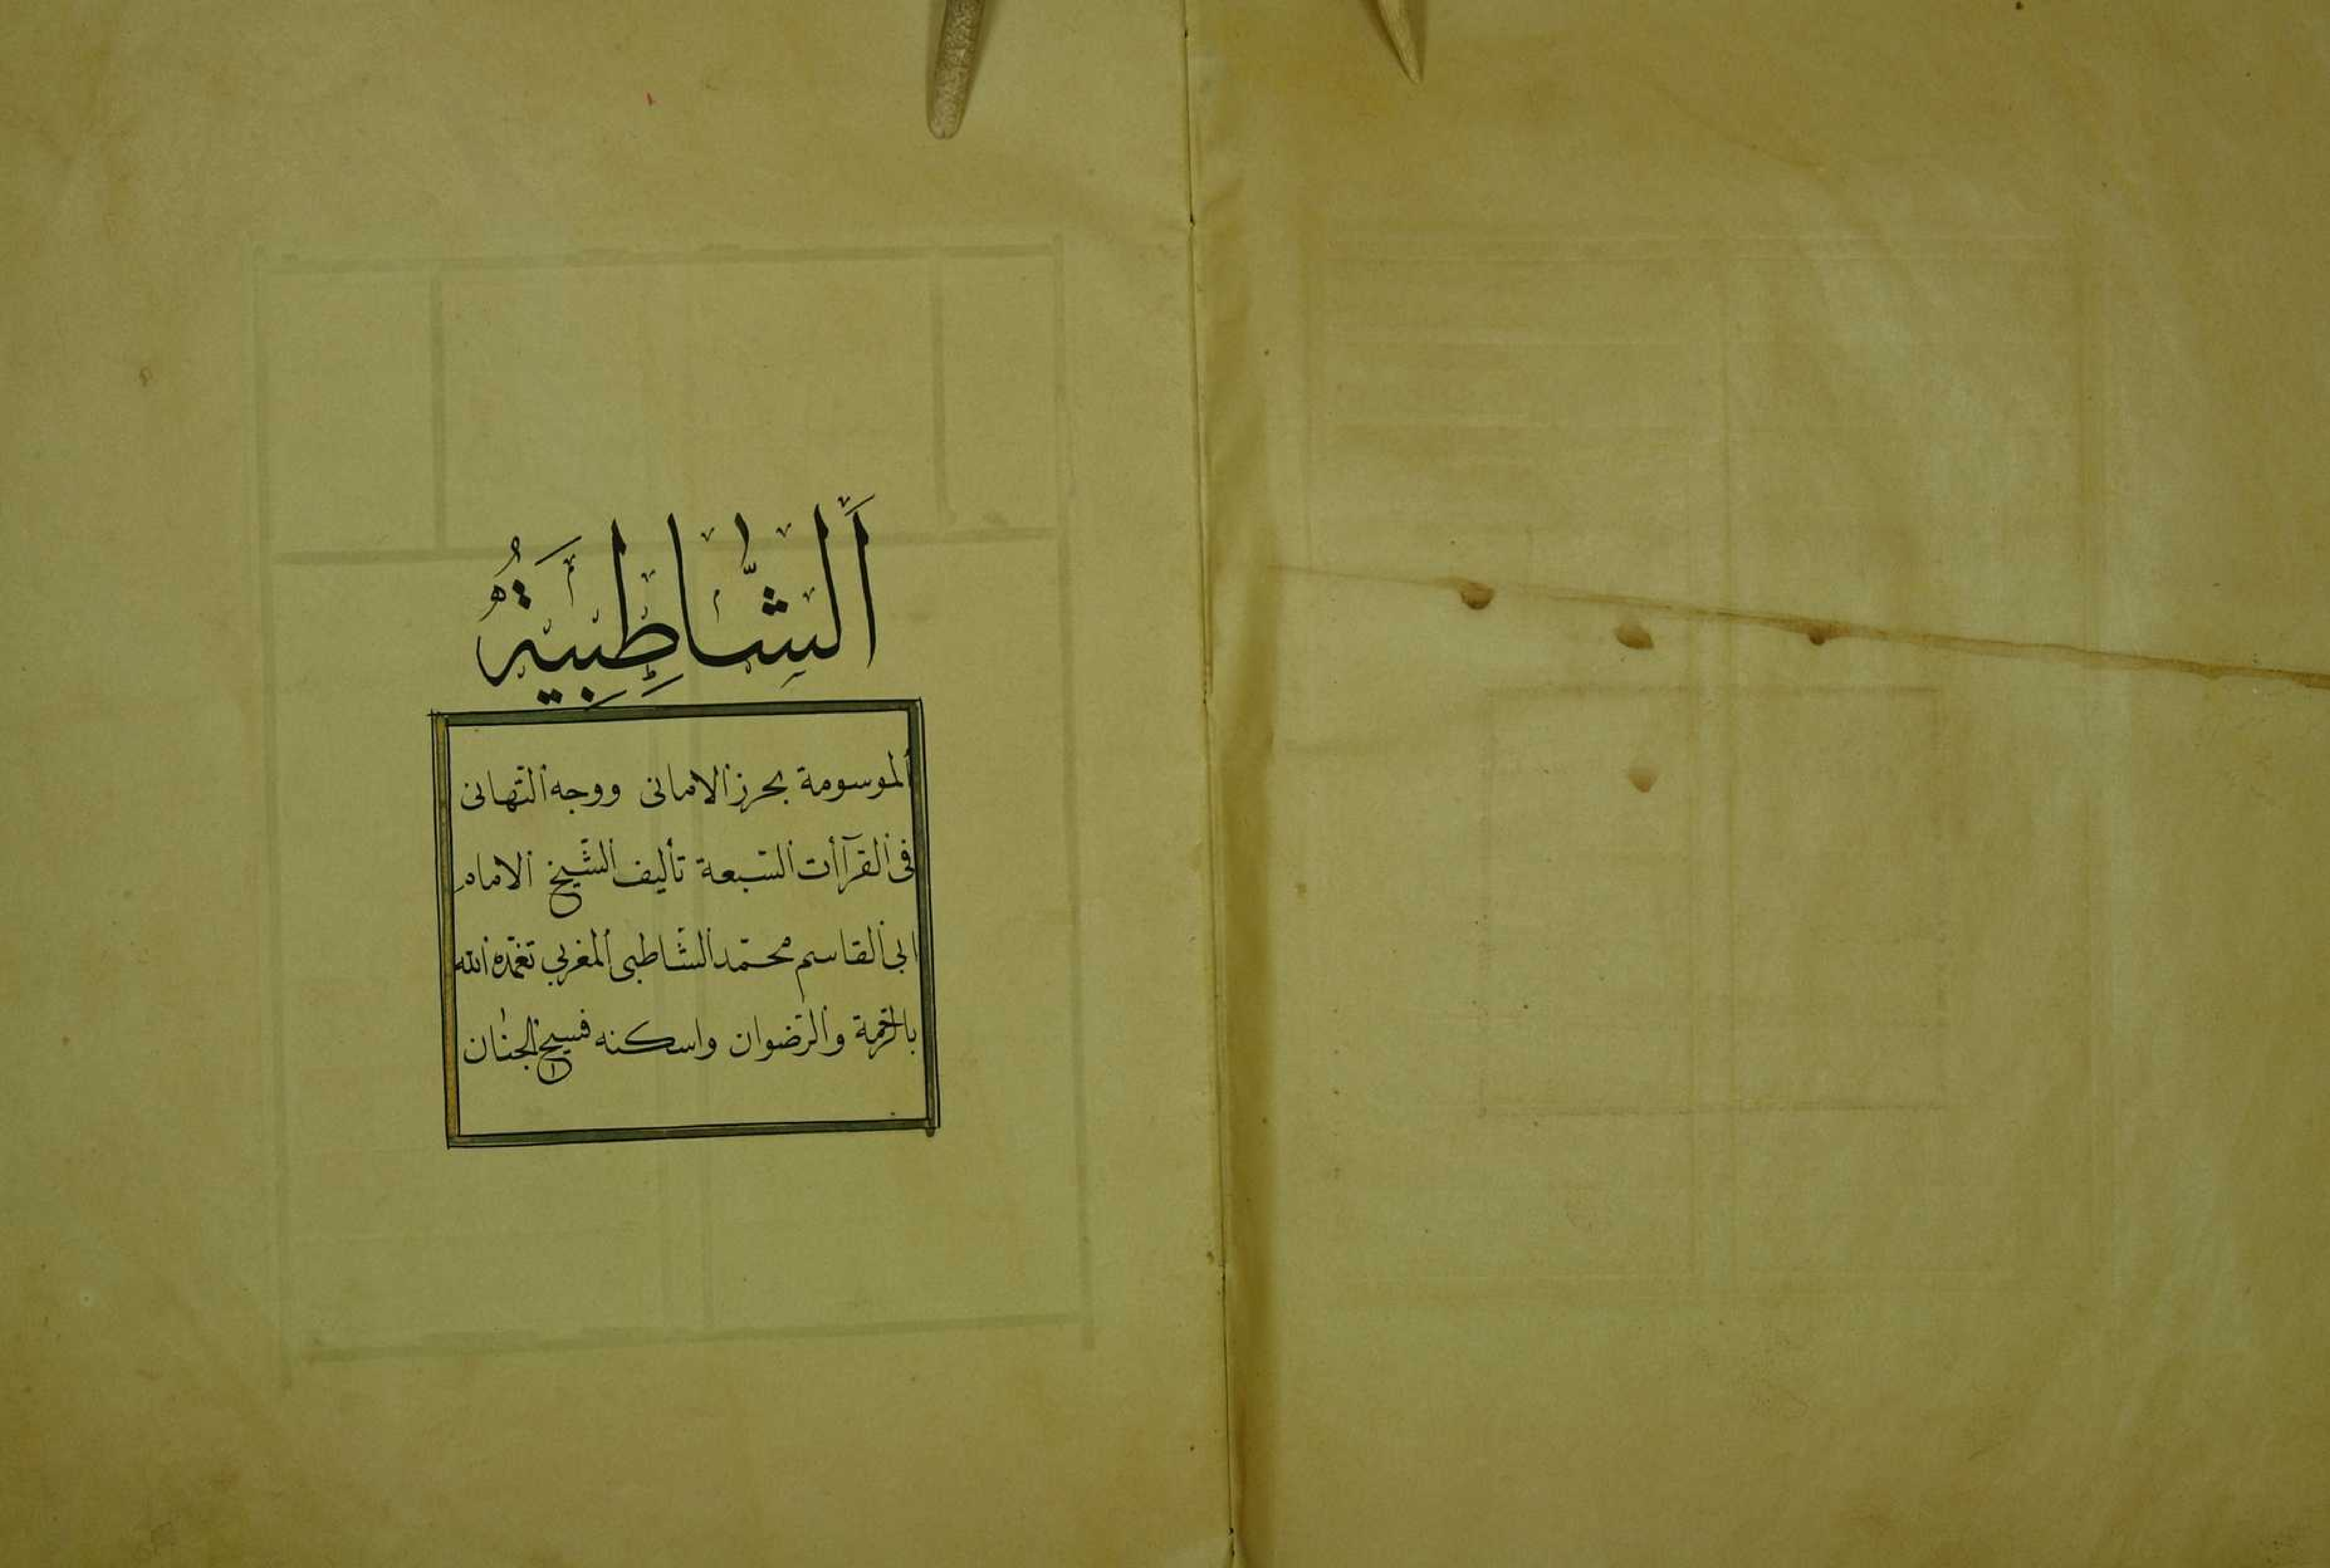 اَلشَّاطِبِيَةُ
ألموسومة بحرز ألامانى ووجه ألتّهانى
فى ألقرآأت ألسّبعة تأليف ألشّيخ ألامام
ابى ألقاسم محمّد ألشّاطبى ألمغربي تغمّده ألله
بالرّحمة وألرّضوان واسكنه فسيح ألجنان